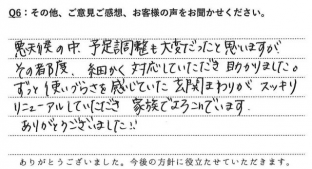 Q6：その他、ご意見ご感想、お客様の声をお聞かせください。
悪天候の中、予定調整も大変だったと思いますが
その都度、細かく対応していただき助かりました。
ずっと使いづらさを感じていた玄関まわりがスッキリ
リニューアルしていただき家族でよろこんでいます。
ありがとうございました!!
ありがとうございました。今後の方針に役立たせていただきます。